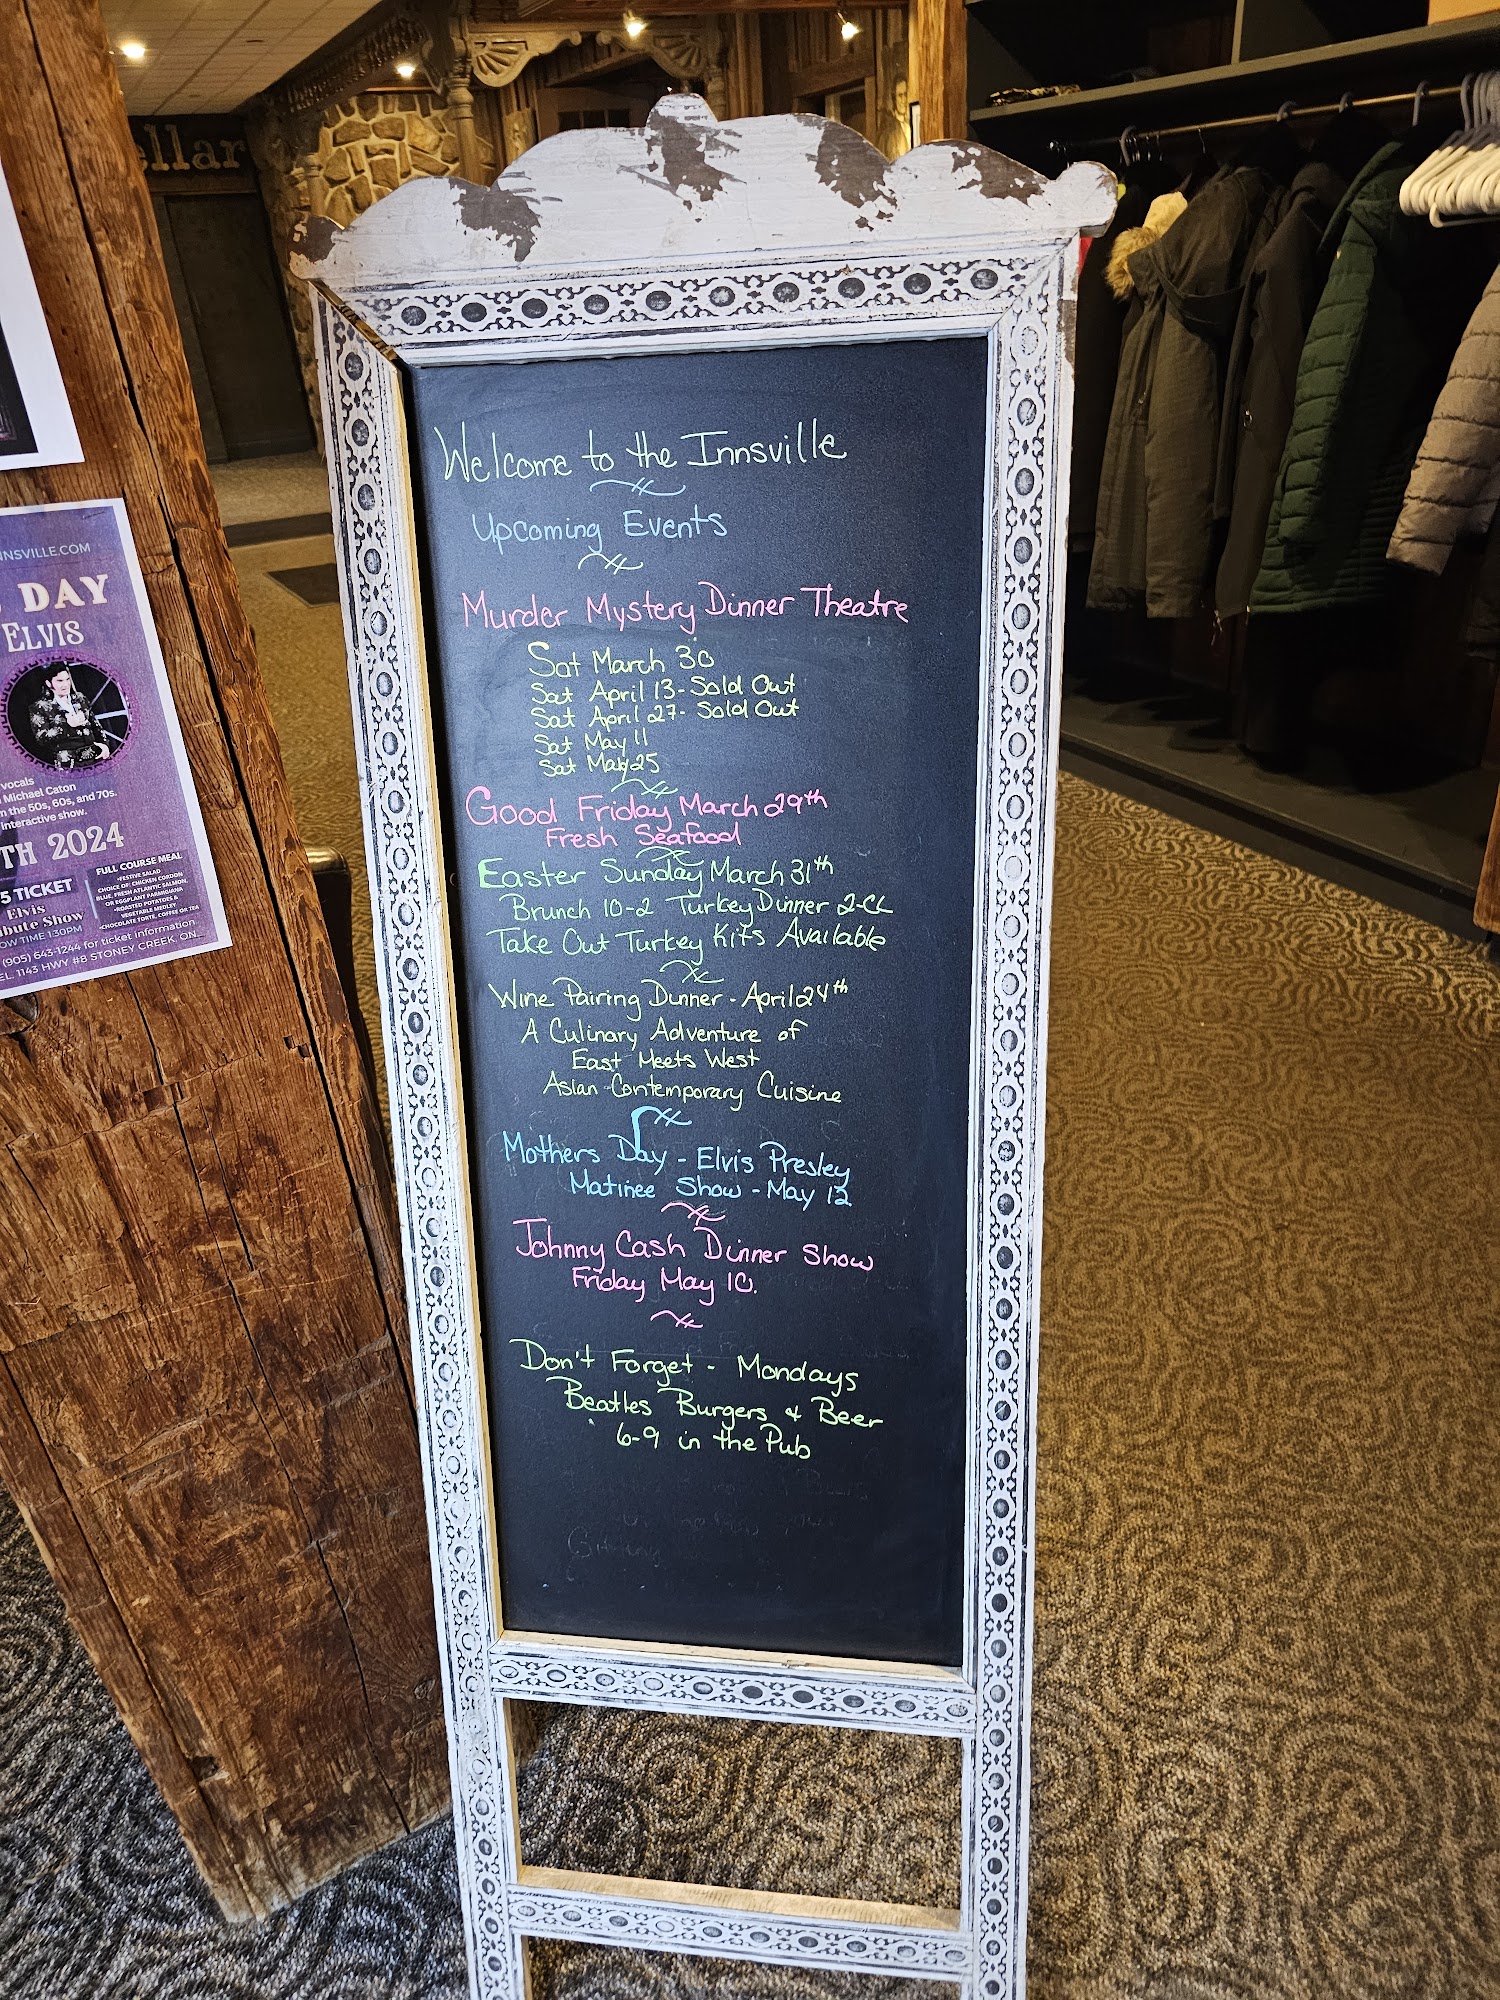 ellar
Welcome to the Innsville
Upcoming Events
Murder Mystery Dinner Theatre
Sat March 30
Sat April 13 - Sold Out
Sat April 27 - Sold Out
Sat May 11
Sat May 25
Good Friday March 29th
Fresh Seafood
Easter Sunday March 31th
Brunch 10-2 Turkey Dinner 2-CL
Take Out Turkey Kits Available
Wine Pairing Dinner - April 24th
A Culinary Adventure of
East Meets West
Asian-Contemporary Cuisine
Mothers Day - Elvis Presley
Matinee Show - May 12
Johnny Cash Dinner Show
Friday May 10.
Don't Forget - Mondays
Beatles Burgers & Beer
6-9 in the Pub
NNSVILLE.COM
DAY
ELVIS
vocals
Michael Caton
n the 50s, 60s, and 70s.
interactive show.
TH 2024
5 TICKET
Elvis
ibute Show
OW TIME 1:30PM
FULL COURSE MEAL
•FESTIVE SALAD
CHOICE OF: CHICKEN CORDON
BLUE, FRESH ATLANTIC SALMON,
OR EGGPLANT PARMIGIANA
•ROASTED POTATOES &
VEGETABLE MEDLEY
•CHOCOLATE TORTE, COFFEE OR TEA
(905) 643-1244 for ticket information
EL. 1143 HWY #8 STONEY CREEK, ON